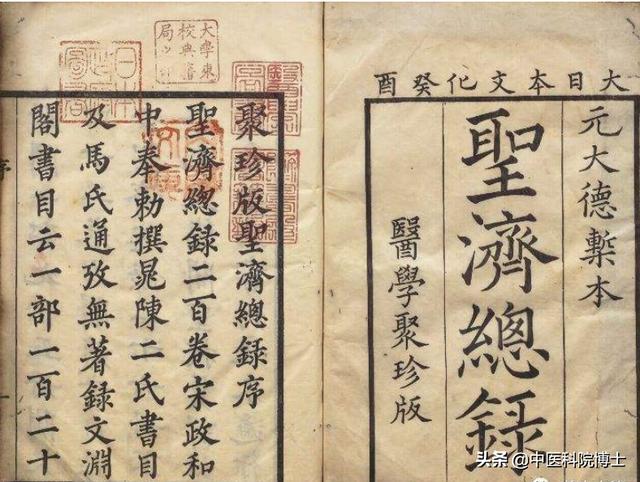 大日本文化癸酉
元大德槧本
聖濟總録
醫學聚珍版
大學東
校典籍
局之印
聚珍版聖濟總録序
聖濟總録二百卷宋政和
中奉勅撰晁陳二氏書目
及馬氏通攷無著録文淵
閣書目云一部一百二十
序
头条 @中医科院博士